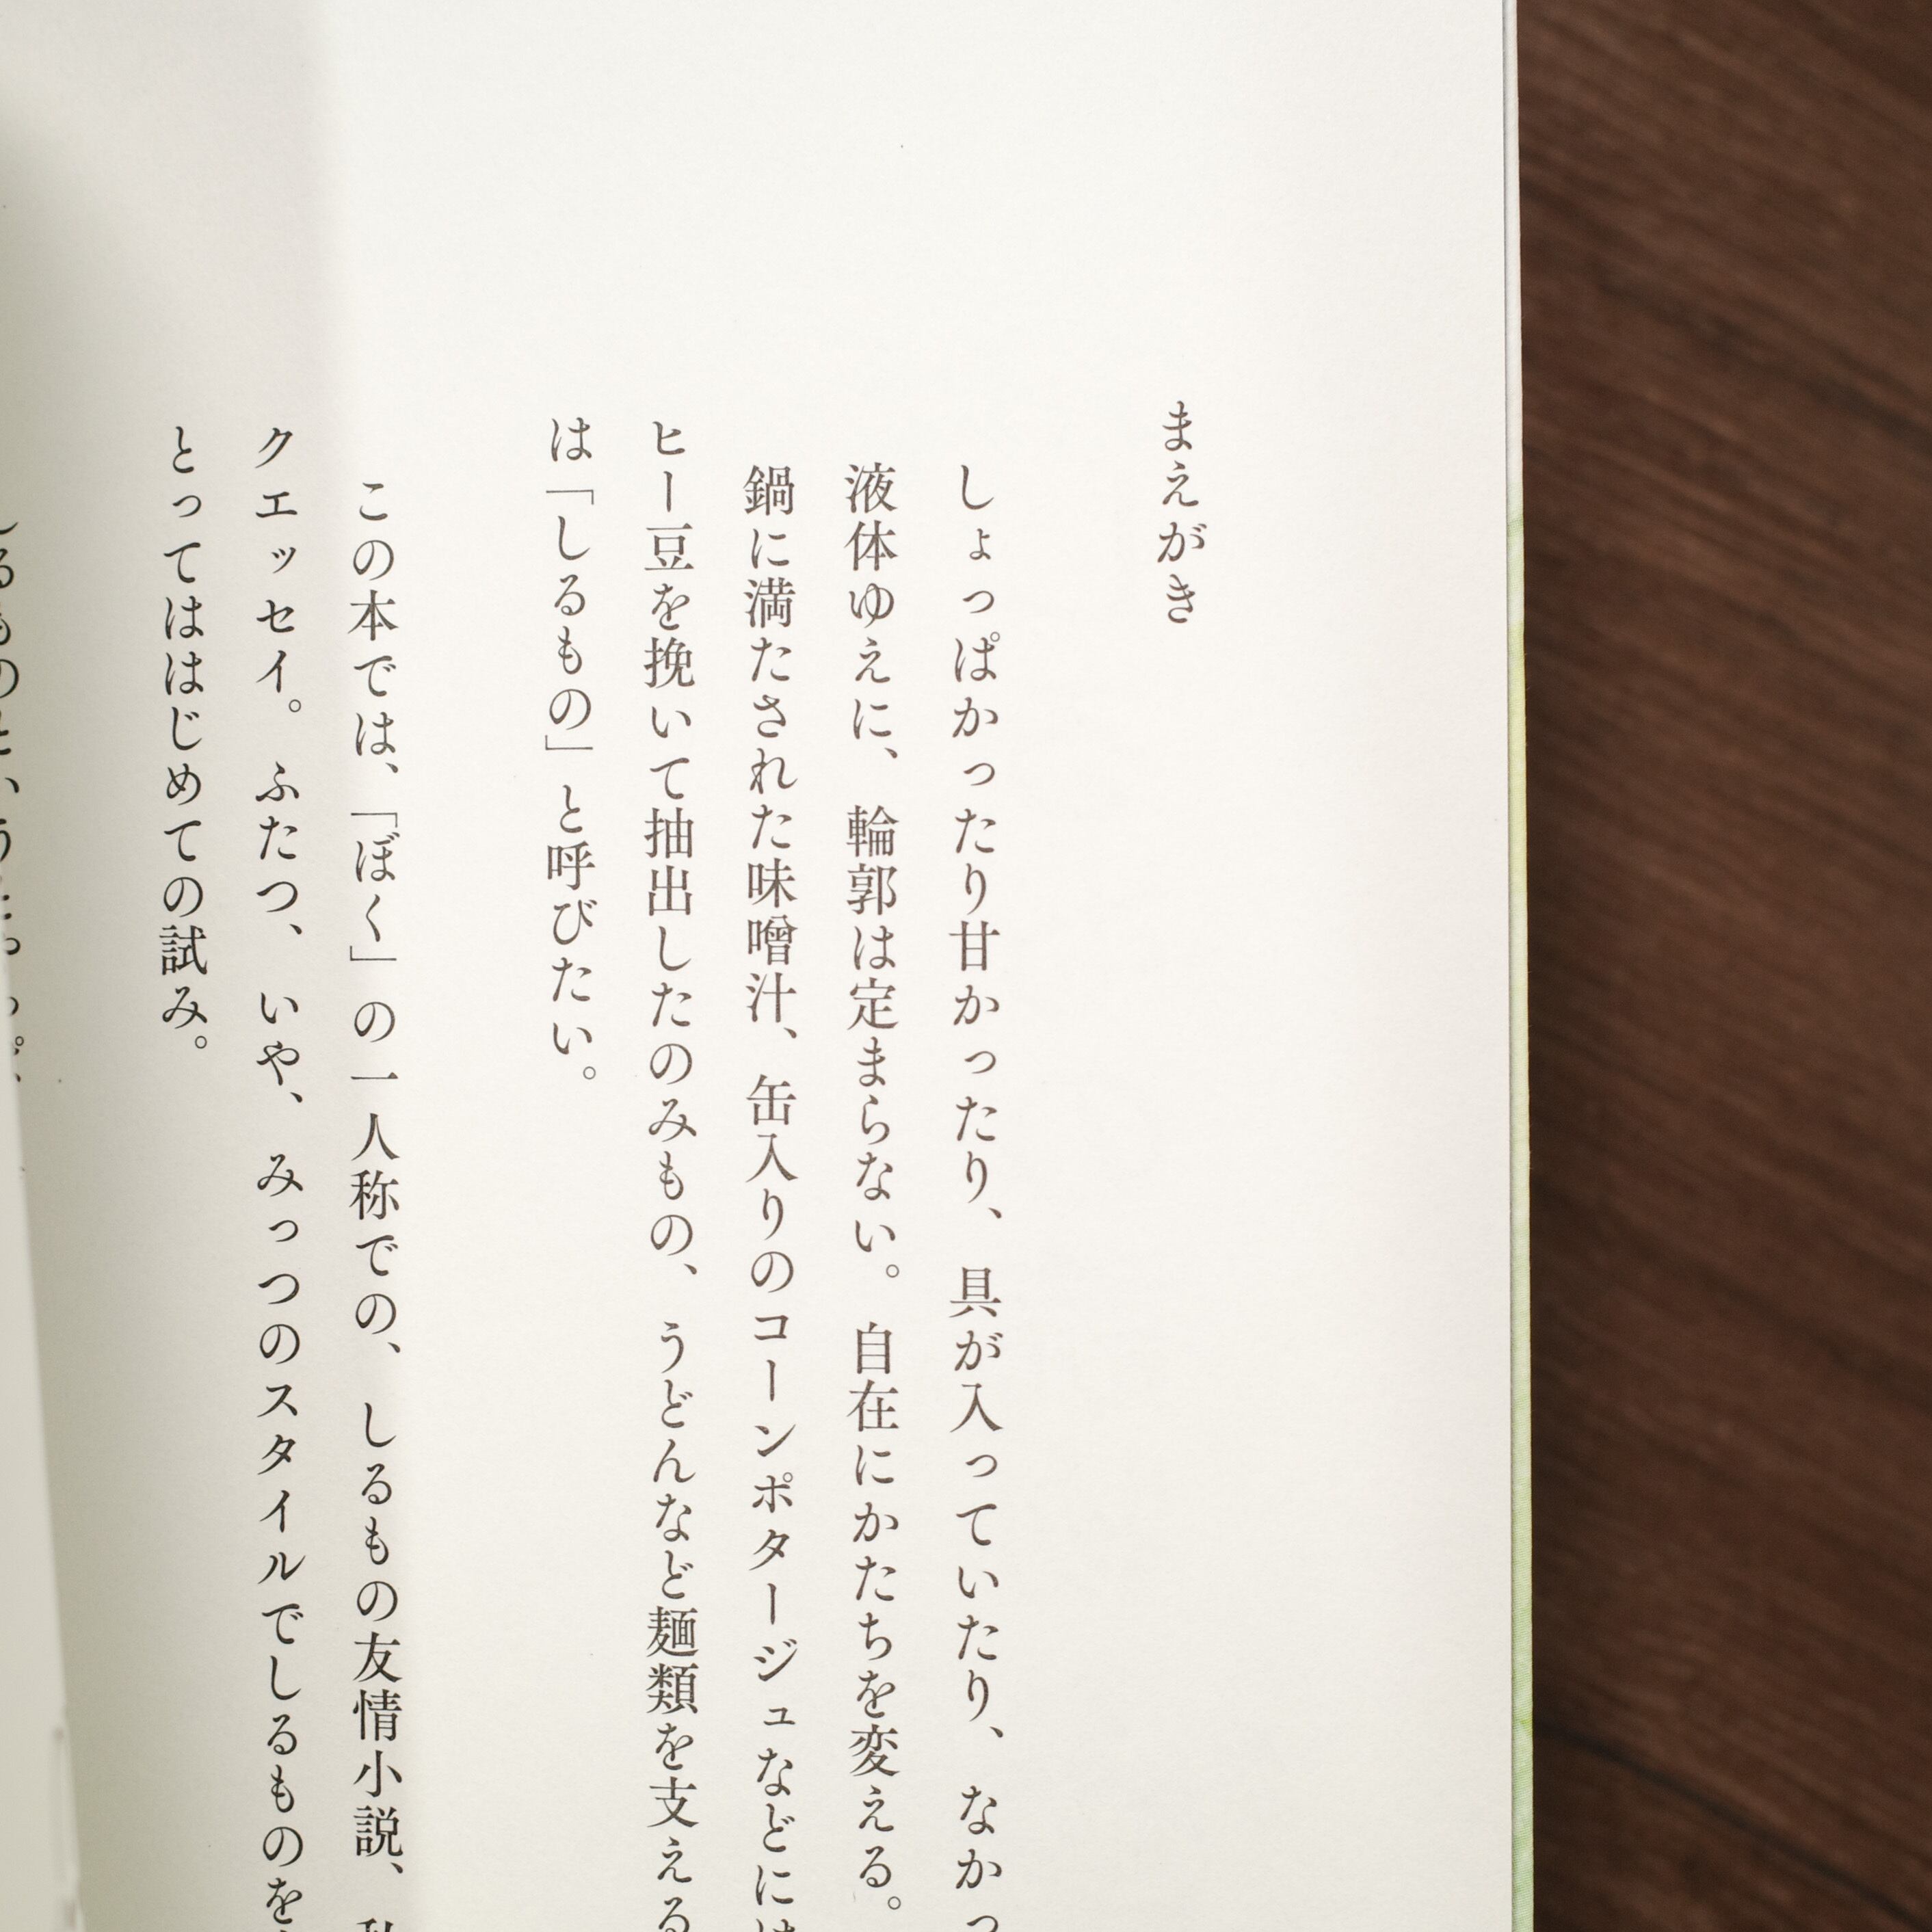 まえがき
しょっぱかったり甘かったり、具が入っていたり、なかっ
液体ゆえに、輪郭は定まらない。自在にかたちを変える。
鍋に満たされた味噌汁、缶入りのコーンポタージュなどには
ヒー豆を挽いて抽出したのみもの、うどんなど麺類を支える
は「しるもの」と呼びたい。
この本では、「ぼく」の一人称での、しるもの友情小説、私
クエッセイ。ふたつ、いや、みっつのスタイルでしるものを
とってははじめての試み。